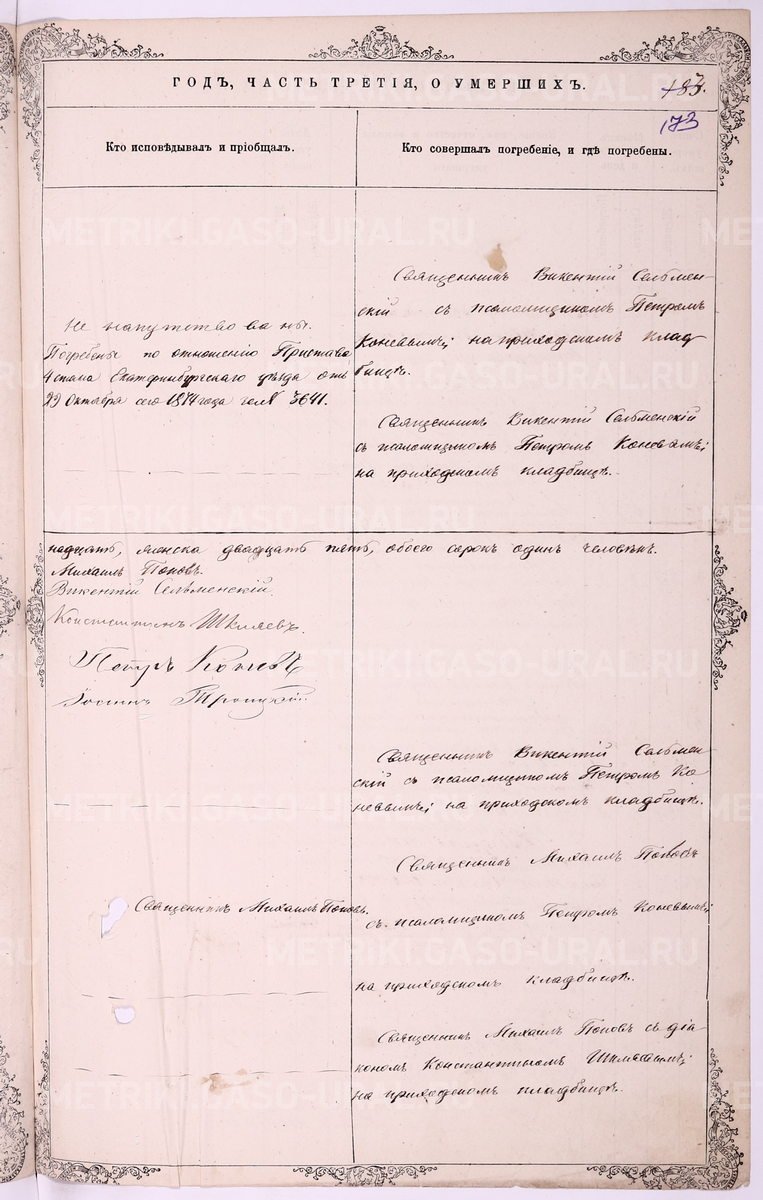 ГОДЪ, ЧАСТЬ ТРЕТІЯ, О УМЕРШИХЪ.
183.
173
Кто исповѣдывалъ и пріобщалъ.
Кто совершалъ погребеніе, и гдѣ погребены.
Не напутствованы.
Погребены по отношенію Пристава
4 стана Екатеринбургскаго уѣзда отъ
29 Октября сего 1874 года за № 3641.
Священникъ Викентій Сельмен-
скій съ псаломщикомъ Петромъ
Коневымъ; на приходскомъ клад-
бищѣ.
Священникъ Викентій Сельменскій
съ псаломщикомъ Петромъ Коневымъ;
на приходскомъ кладбищѣ.
надцать, женска двадцать пять, обоего сорокъ одинъ человѣкъ.
Михаилъ Поповъ.
Викентій Сельменскій.
Константинъ Шиляевъ.
Петръ Коневъ
Іоаннъ Троицкій.
Священникъ Викентій Сельмен-
скій съ псаломщикомъ Петромъ Ко-
невымъ; на приходскомъ кладбищѣ.
Священникъ Михаилъ Поповъ.
Священникъ Михаилъ Поповъ
съ псаломщикомъ Петромъ Коневымъ;
на приходскомъ кладбищѣ.
Священникъ Михаилъ Поповъ съ діа-
кономъ Константиномъ Шиляевымъ;
на приходскомъ кладбищѣ.
METRIKI.GASO-URAL.RU